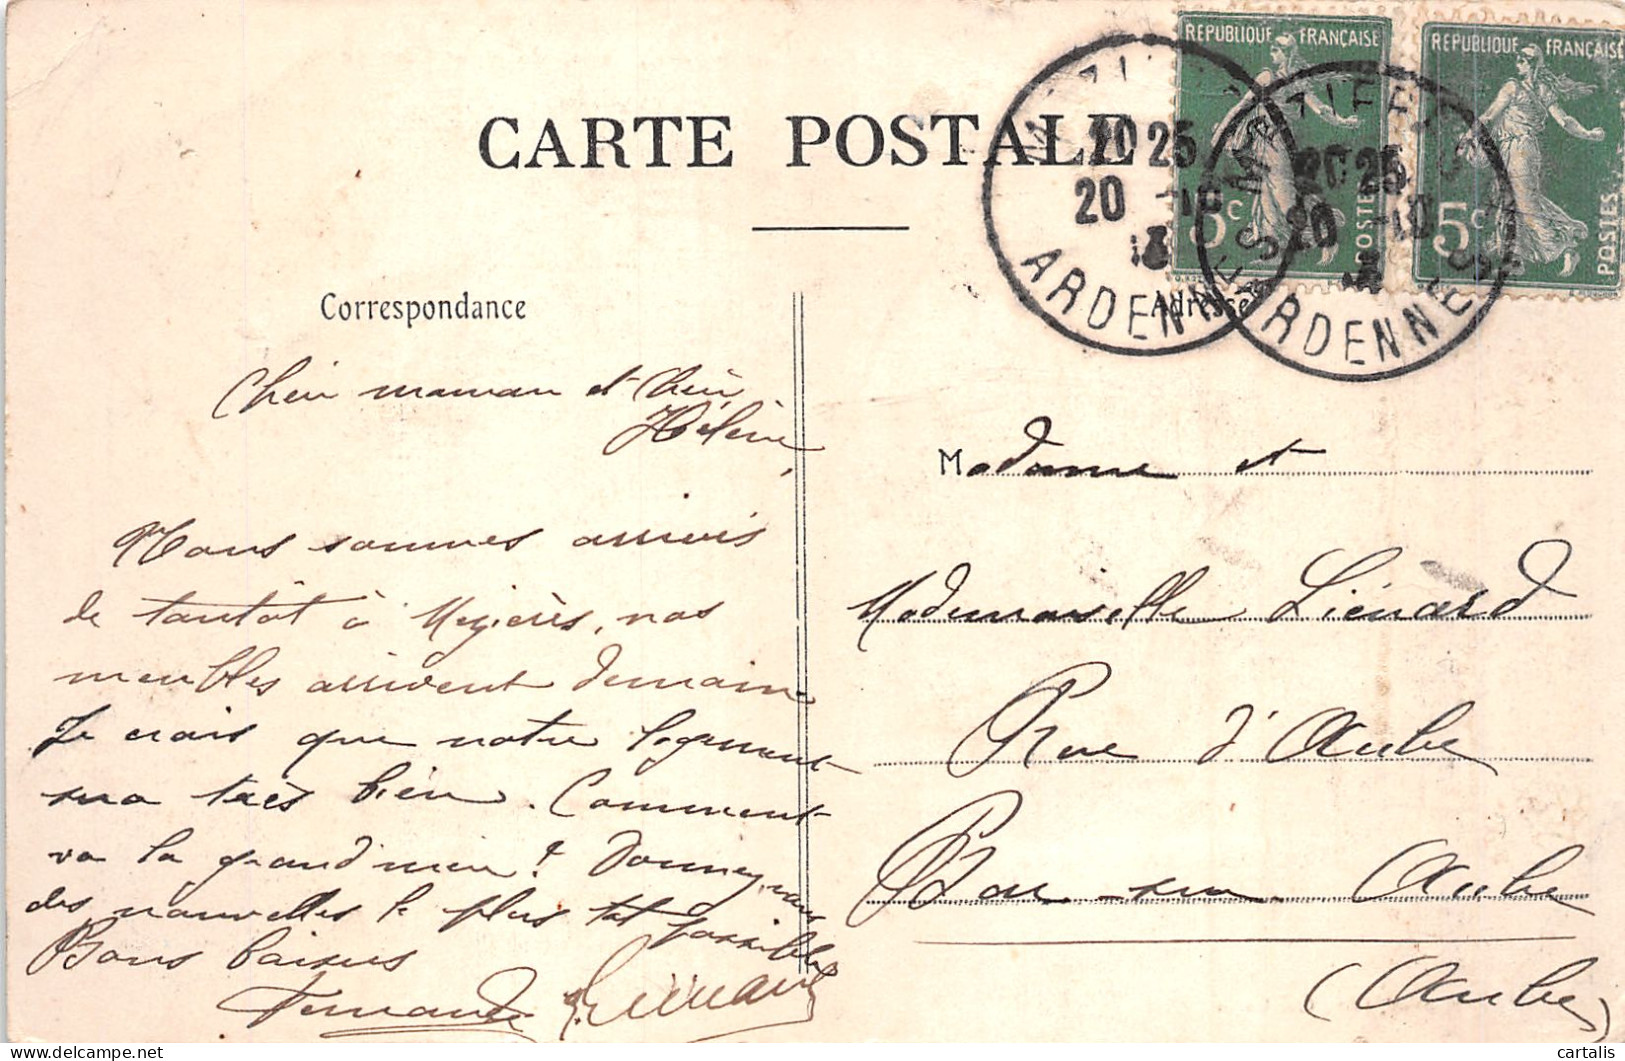 CARTE POSTALE
REPUBLIQUE FRANÇAISE
5c
POSTES
REPUBLIQUE FRANÇAISE
5c
POSTES
20 25
20 -10
ARDENNES
MEZIERES
20 25
20 -10
ARDENNES
Correspondance
Adresse
Chère maman et chère
Hélène,
Nous sommes arrivés
de tantôt à Mézières, nos
meubles arrivent demain
Je crois que notre logement
sera très bien. Comment
va la grand'mère? Donnez nous
des nouvelles le plus tôt possible
Bons baisers
Fernande
Madame et
Mademoiselle Liénard
Rue d'Aube
Bar-sur-Aube
(Aube)
cartalis